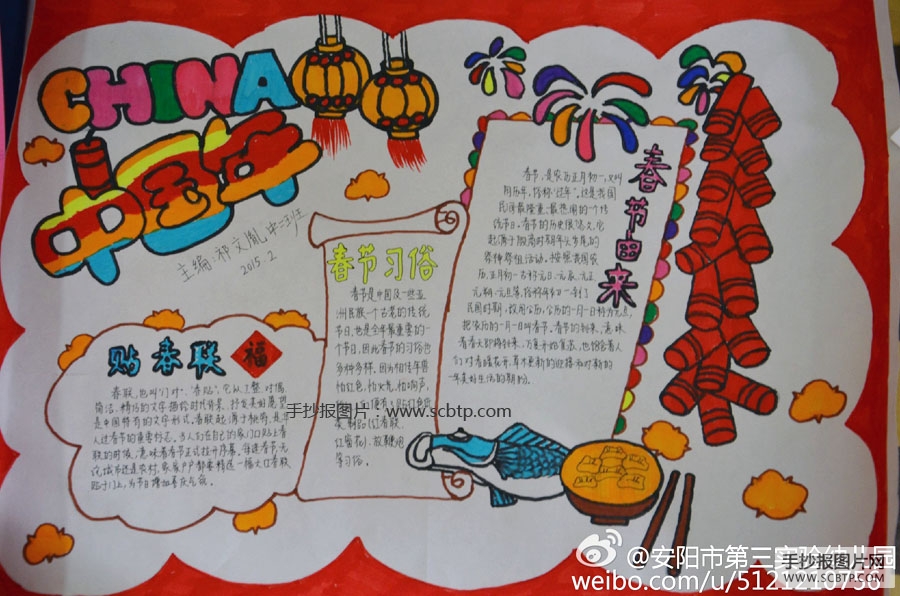 CHINA
中国年
主编:祁文胤 中二班
2015.2
春节由来
春节,是农历正月初一,又叫
阴历年,俗称"过年"。这是我国
民间最隆重、最热闹的一个传
统节日。春节的历史很悠久,它
起源于殷商时期年头岁尾的
祭神祭祖活动。按照我国农
历,正月初一古称元日、元辰、元正、
元朔、元旦等,俗称年初一,到了
民国时期,改用公历,公历的一月一日称为元旦,
把农历的一月一日叫春节。春节的到来,意味
着春天即将到来,万象
新的
一年美好生活的期盼。
春节习俗
春节是中国及一些亚
洲民族一个古老的传统
节日,也是全年最重要的一
个节日,因此春节的习俗也
多种多样。因为相传年兽
怕红色,怕火光,怕响声,
红色
(红春联、
红窗花)、放鞭炮
等习俗。
贴春联
福
春联,也叫"门对"、"春贴",它以工整、对偶、
简洁、精巧的文字描绘时代背景、抒发美好愿望,
是中国特有的文学形式。春联起源于桃符,是华
人过春节的重要标志。当人们在自己的家门口贴上春
联的时候,意味着春节正式拉开序幕。每逢春节,无
论城市还是农村,家家户户都要精选一幅大红春联
贴于门上,为节日增加喜庆气氛。
手抄报图片:www.scbtp.com
@安阳市第三实验幼儿园
weibo.com/u/5121210756
手抄报图片网
WWW.SCBTP.COM